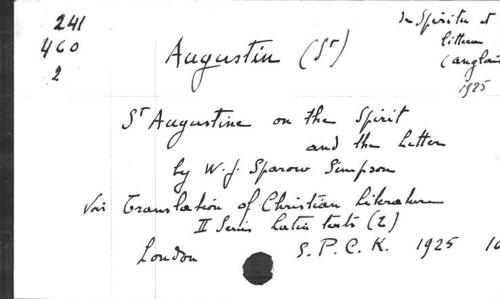 241
460
2
Augustin (St)
de Spiritu et
littera
(anglais
1925
St Augustine on the Spirit
and the Letter
by W. J. Sparow Simpson
Voir Translation of Christian Literature
II Series Latin texts (2)
London S. P. C. K. 1925